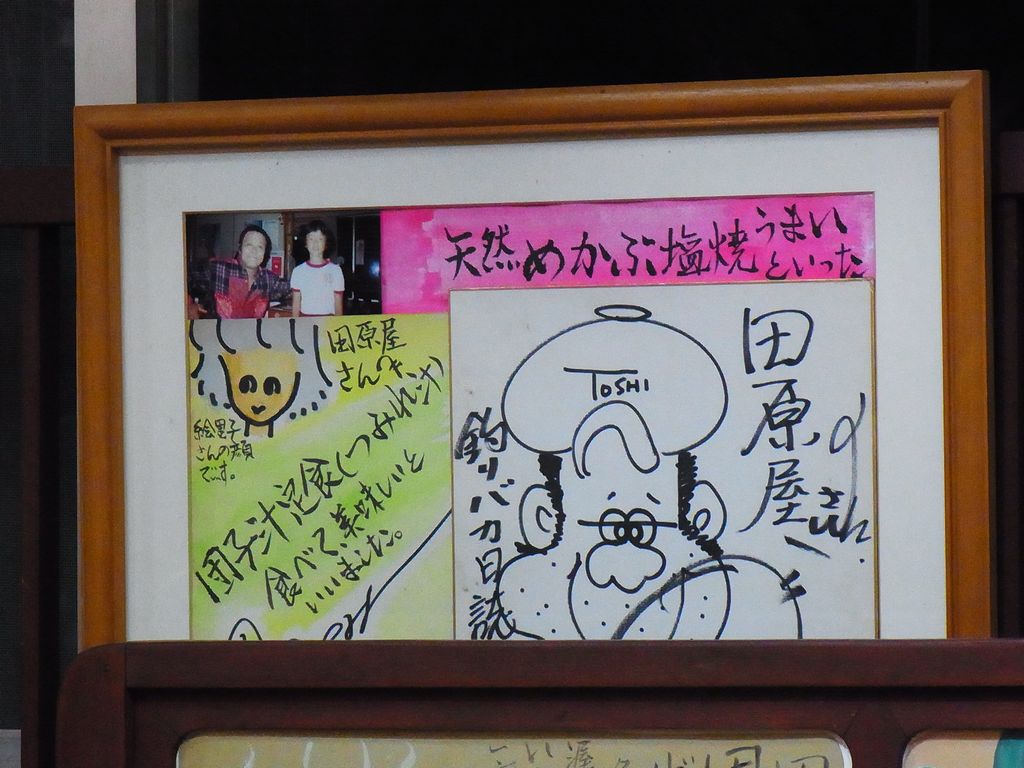 天然めかぶ塩焼うまい
といった
田原屋
さんのき
絵里子
さんの顔
です。
団子汁定食(つみれ汁)
食べて、美味しいと
いいました。
TOSHI
釣りバカ日誌
田原屋さんへ